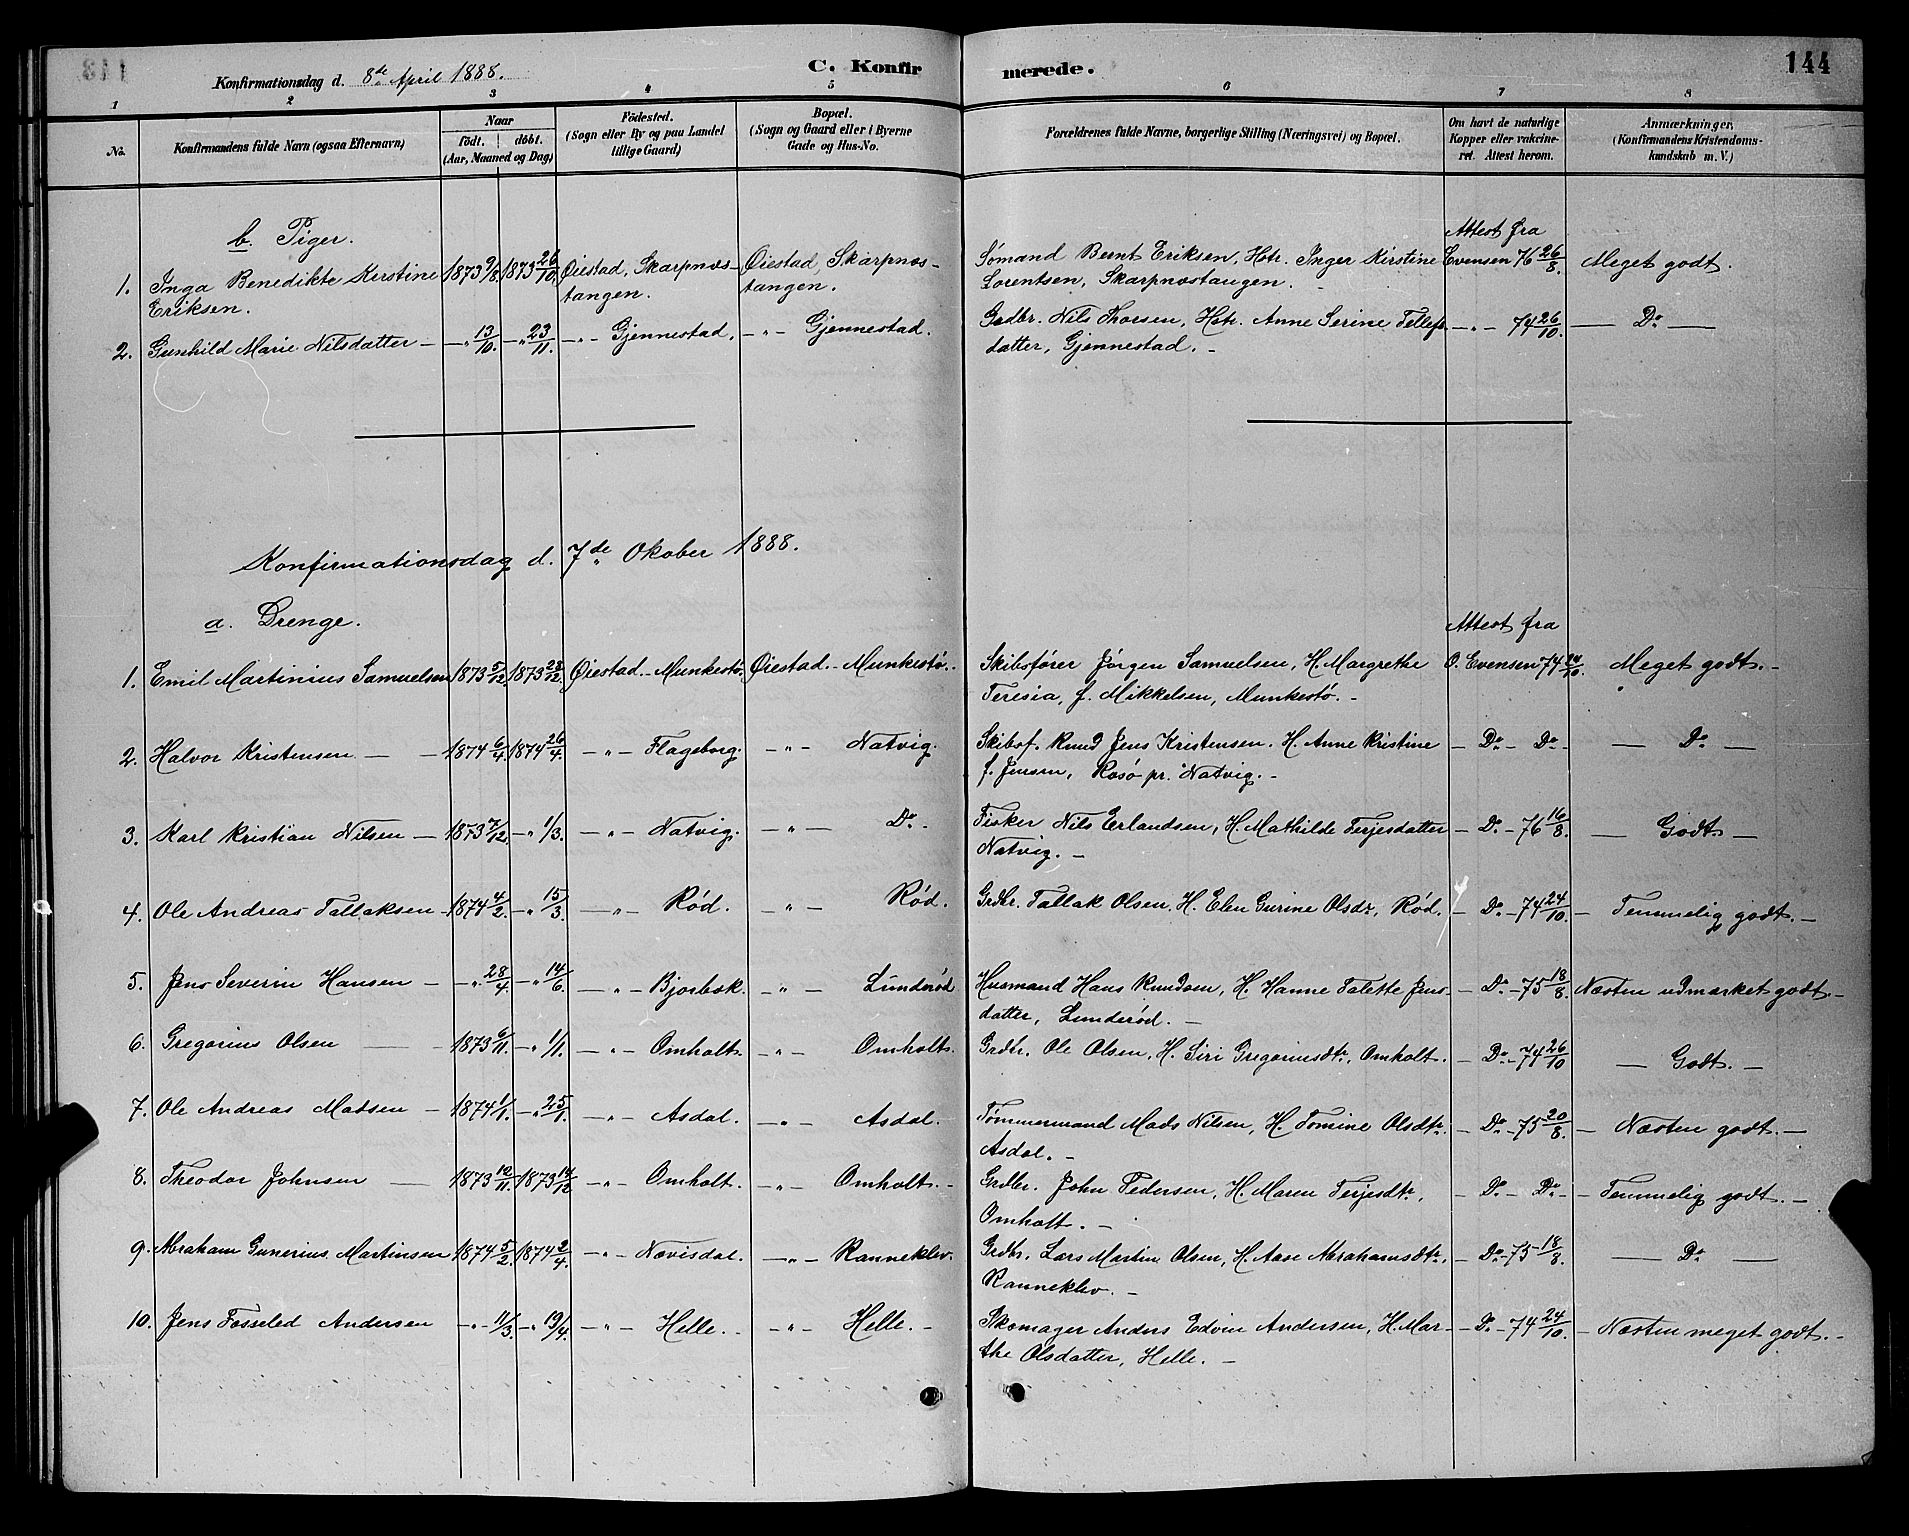 Konfirmationsdag d. 8de April 1888.
C. Konfirmerede.
144
1 2 3 4 5 6 7 8
No.
Konfirmandens fulde Navn (ogsaa Efternavn)
Naar
födt. döbt.
(Aar, Maaned og Dag)
Födested.
(Sogn eller By og paa Landet
tillige Gaard)
Bopæl.
(Sogn og Gaard eller i Byerne
Gade og Hus-No.
Forældrenes fulde Navne, borgerlige Stilling (Næringsvei) og Bopæl.
Om havt de naturlige
Kopper eller vakcine-
ret. Attest herom.
Anmærkninger.
(Konfirmandens Kristendoms-
kundskab m. V.)
b. Piger.
Attest fra
1. Inga Benedikte Kerstine 1873 9/8. 1873 26/10. Øiestad, Skarpnæs- Øiestad, Skarpnæs- Sømand Bernt Eriksen, Hstr. Inger Kirstine Evensen 76 26/8. Meget godt.
Eriksen. tangen. tangen. Lorentsen, Skarpnæstangen. -
2. Gunhild Marie Nilsdatter - -"- 13/10. -"- 23/11. -"- Gjennestad. -"- Gjennestad. Grdbr. Nils Thorsen, Hstr. Anne Serine Tellefs- -"- 74 26/10. - Do -
datter, Gjennestad. -
Konfirmationsdag d. 7de Okober 1888.
a. Drenge.
Attest fra
1. Emil Martinius Samuelsen 1873 5/12. 1873 28/12. Øiestad. - Munkestø. Øiestad. - Munkestø. Skibsfører Jørgen Samuelsen, H. Margrethe O. Evensen 74 24/10. Meget godt. -
Teresia, f. Mikkelsen, Munkestø. -
2. Halvor Kristensen. - - 1874 6/4. 1874 26/4. -"- Flageborg. -"- Natvig. Skibsf. Knud Jens Kristensen. H. Anne Kristine - Do - Do - - Do -
f. Jensen, Rosø pr. Natvig. -
3. Karl Kristian Nilsen - 1873 7/12. -"- 1/3. -"- Natvig. -"- Do - Fisker Nils Erlandsen, H. Mathilde Terjesdatter - Do - 76 16/8. - Godt -
Natvig. -
4. Ole Andreas Tallaksen 1874 4/2. -"- 15/3. -"- Rød. -"- Rød. Grdbr. Tallak Olsen. H. Elen Gurine Olsdr, Rød. - Do - 74 24/10. - Temmelig godt. -
5. Jens Severin Hansen - -"- 28/4. -"- 14/6. -"- Bjorbæk. -"- Lunderød Husmand Hans Knudsen, H. Hanne Talette Jens- - Do - 75 18/8. Næsten udmærket godt. -
datter, Lunderød. -
6. Gregorius Olsen - - 1873 6/11. -"- 1/1. -"- Omholt. -"- Omholt. Grdbr. Ole Olsen, H. Siri Gregoriusdtr, Omholt. - Do - 74 26/10 - Godt. -
7. Ole Andreas Madsen - 1874 1/1. -"- 25/1. -"- Asdal. -"- Asdal. Tømmermand Mads Nilsen, H. Tomine Olsdtr. - Do - 75 20/8. - Næsten godt. -
Asdal. -
8. Theodor Johnsen - 1873 12/11. 1873 14/12 -"- Omholt. -"- Omholt. - Grdbr. John Pedersen, H. Maren Terjesdtr, - Do - Do - - Temmelig godt. -
Omholt. -
9. Abraham Gunerius Martinsen 1874 5/2. 1874 2/4. -"- Nævisdal. -"- Ranneklev. Grdbr. Lars Martin Olsen, H. Aase Abrahamsdtr. - Do - 75 18/8. - Do -
Ranneklev. -
10. Jens Fosseled Andersen -"- 11/3. -"- 19/4. -"- Helle. - -"- Helle. - Skomager Anders Edvin Andersen, H. Mar- - Do - 74 24/10. - Næsten meget godt. -
the Olsdatter, Helle. -